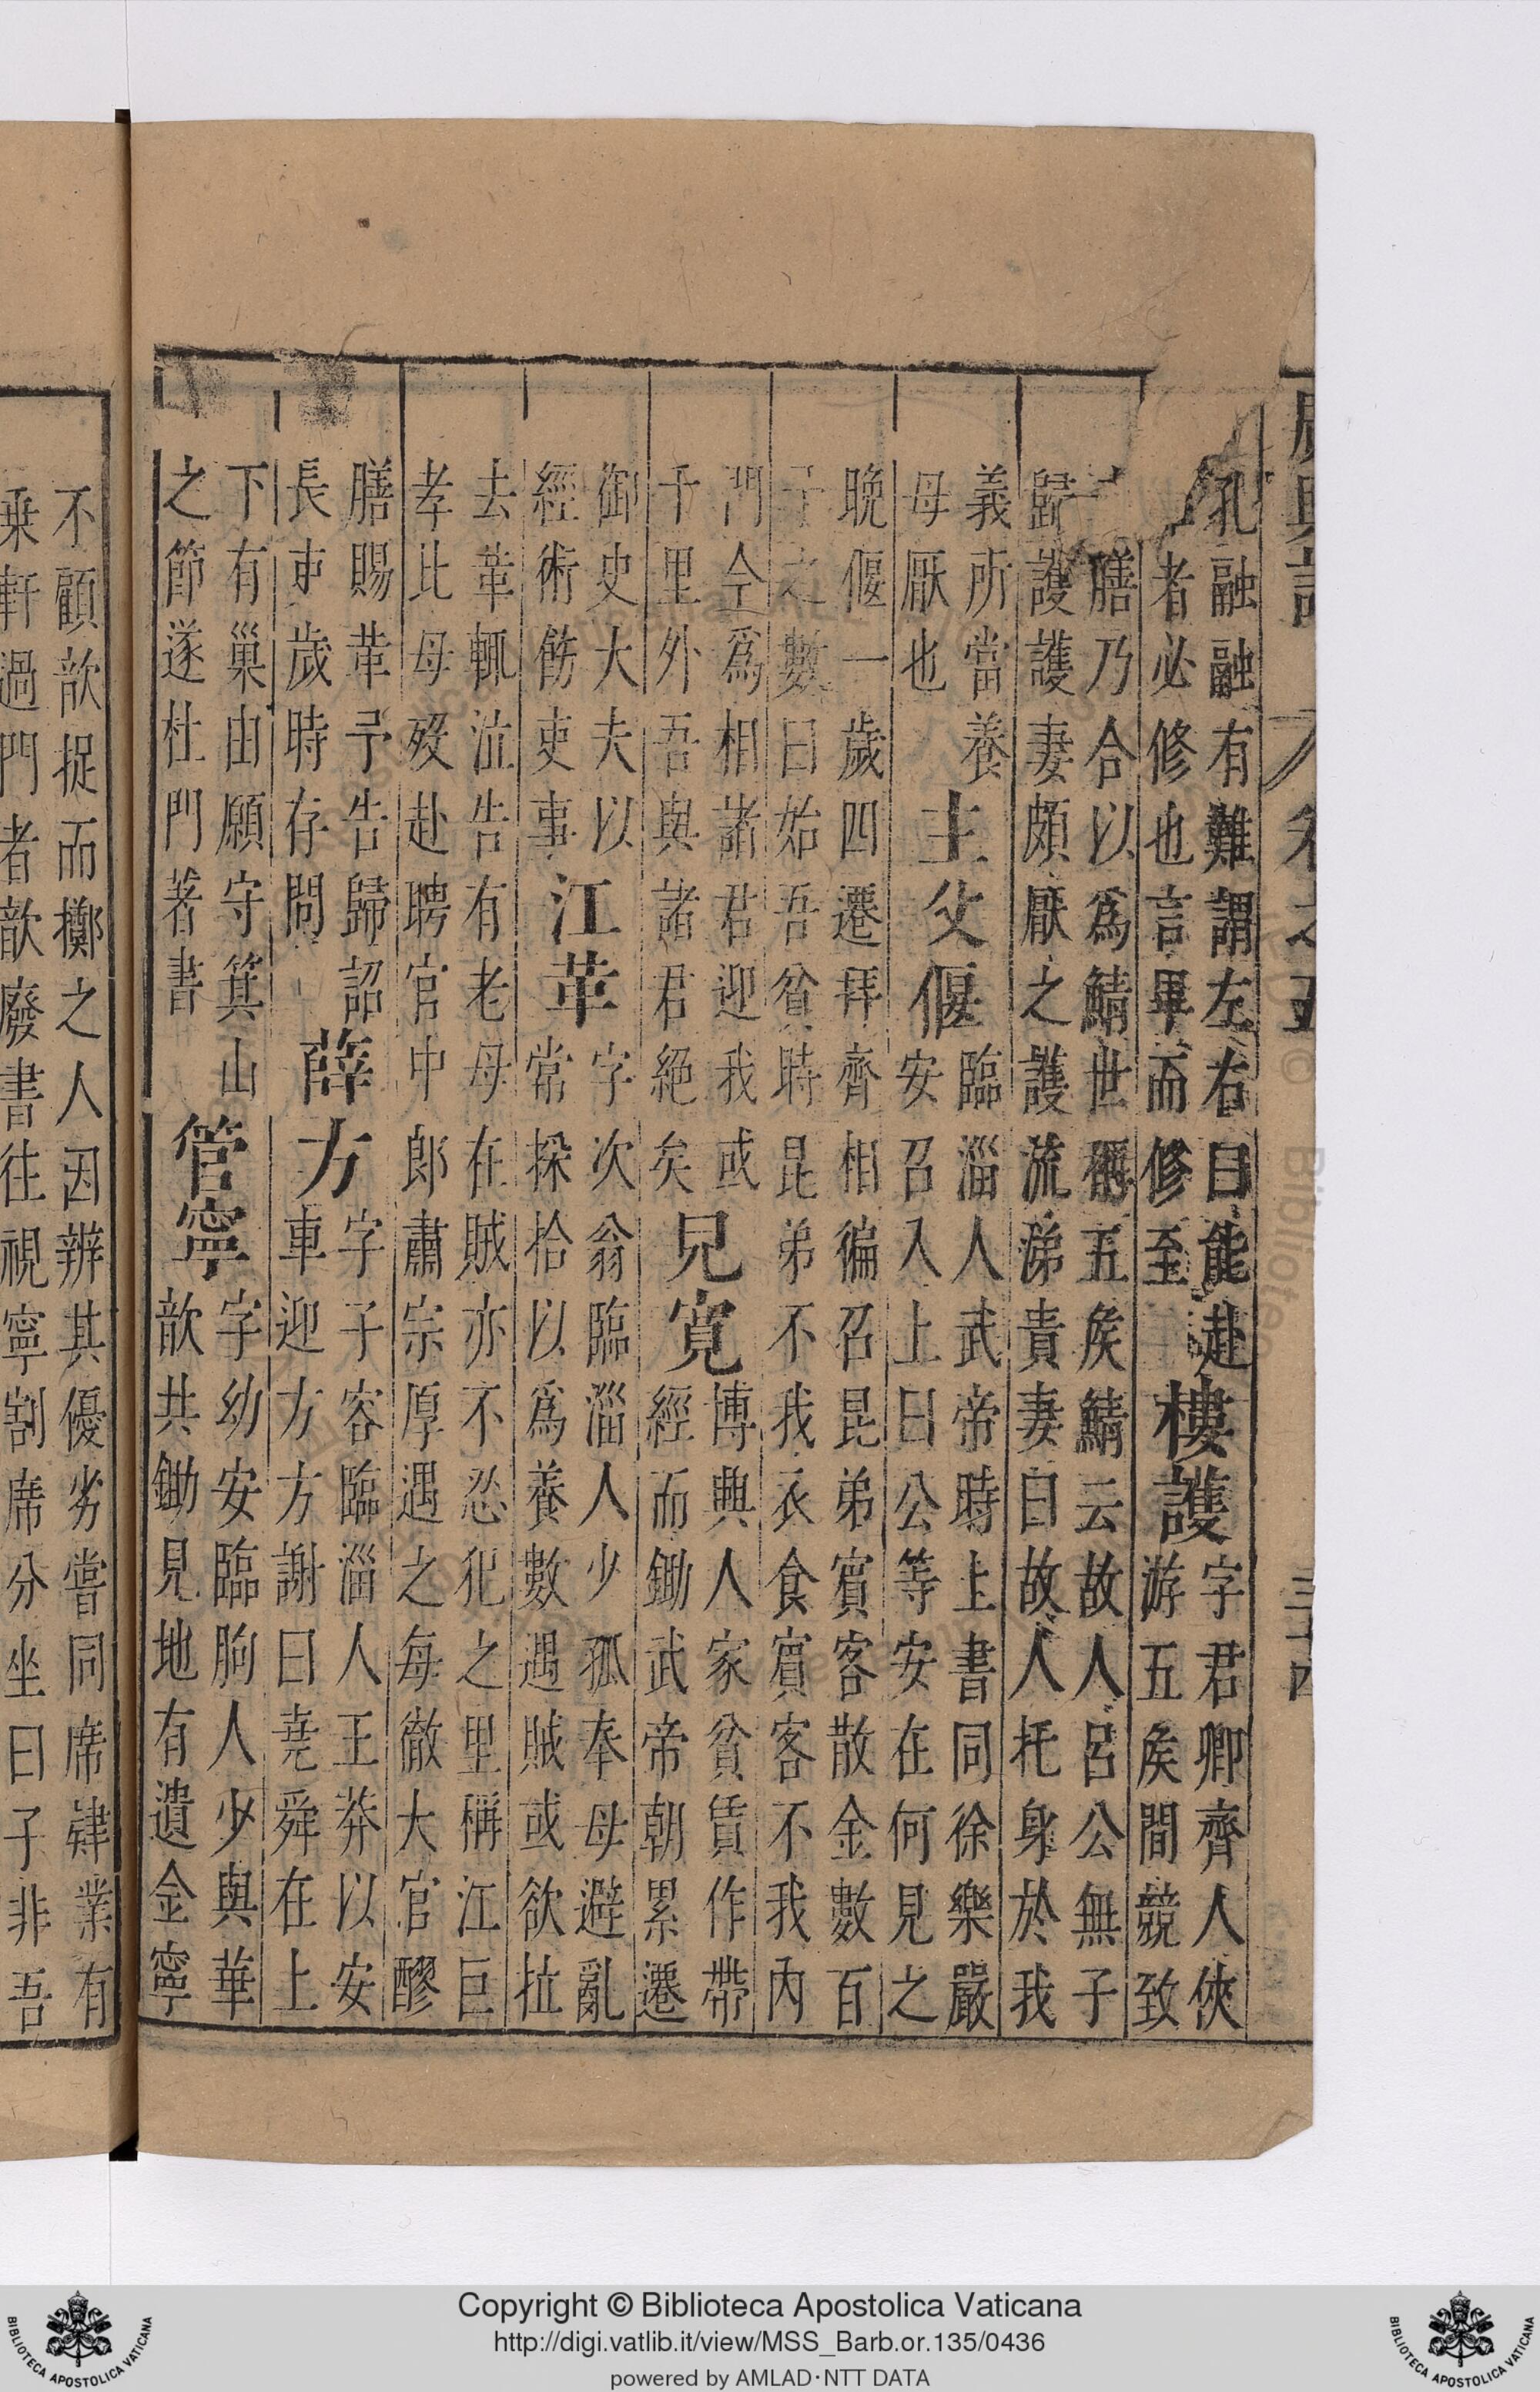 孔融融有難謂左右曰能赴
者必修也言畢而修至
樓護
字君卿齊人俠
游五矦間競致
膳乃合以爲鯖世稱五矦鯖云故人呂公無子
歸護護妻頗厭之護流涕責妻曰故人托身於我
義所當養
母厭也
主父偃
臨淄人武帝時上書同徐樂嚴
安召入上曰公等安在何見之
晚偃一歲四遷拜齊相徧召昆弟賓客散金數百
予之數曰始吾貧時昆弟不我衣食賓客不我內
門今爲相諸君迎我或
千里外吾與諸君絕矣
兒寬
博興人家貧賃作帶
經而鋤武帝朝累遷
御史大夫以
經術飭吏事
江革
字次翁臨淄人少孤奉母避亂
常採拾以爲養數遇賊或欲拉
去革輒泣告有老母在賊亦不忍犯之里稱江巨
孝比母歿赴聘官中郎肅宗厚遇之每徹大官醪
膳賜革予告歸詔
長吏歲時存問
薛方
字子容臨淄人王莽以安
車迎方方謝曰堯舜在上
下有巢由願守箕山
之節遂杜門著書
管寧
字幼安臨朐人少與華
歆共鋤見地有遺金寧
不顧歆捉而擲之人因辨其優劣嘗同席肄業有
乗軒過門者歆廢書往視寧割席分坐曰子非吾
卷之五
Copyright © Biblioteca Apostolica Vaticana
http://digi.vatlib.it/view/MSS_Barb.or.135/0436
powered by AMLAD·NTT DATA
BIBLIOTECA APOSTOLICA VATICANA
BIBLIOTECA APOSTOLICA VATICANA